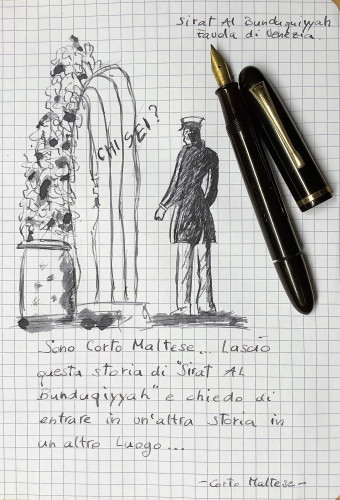 Sirat Al Bunduquiyyah
favola di Venezia
CHI SEI?
Sono Corto Maltese... Lascio
questa storia di "Sirat AL
Bunduqiyyah" e chiedo di
entrare in un'altra storia in
un altro Luogo...
- Corto Maltese -